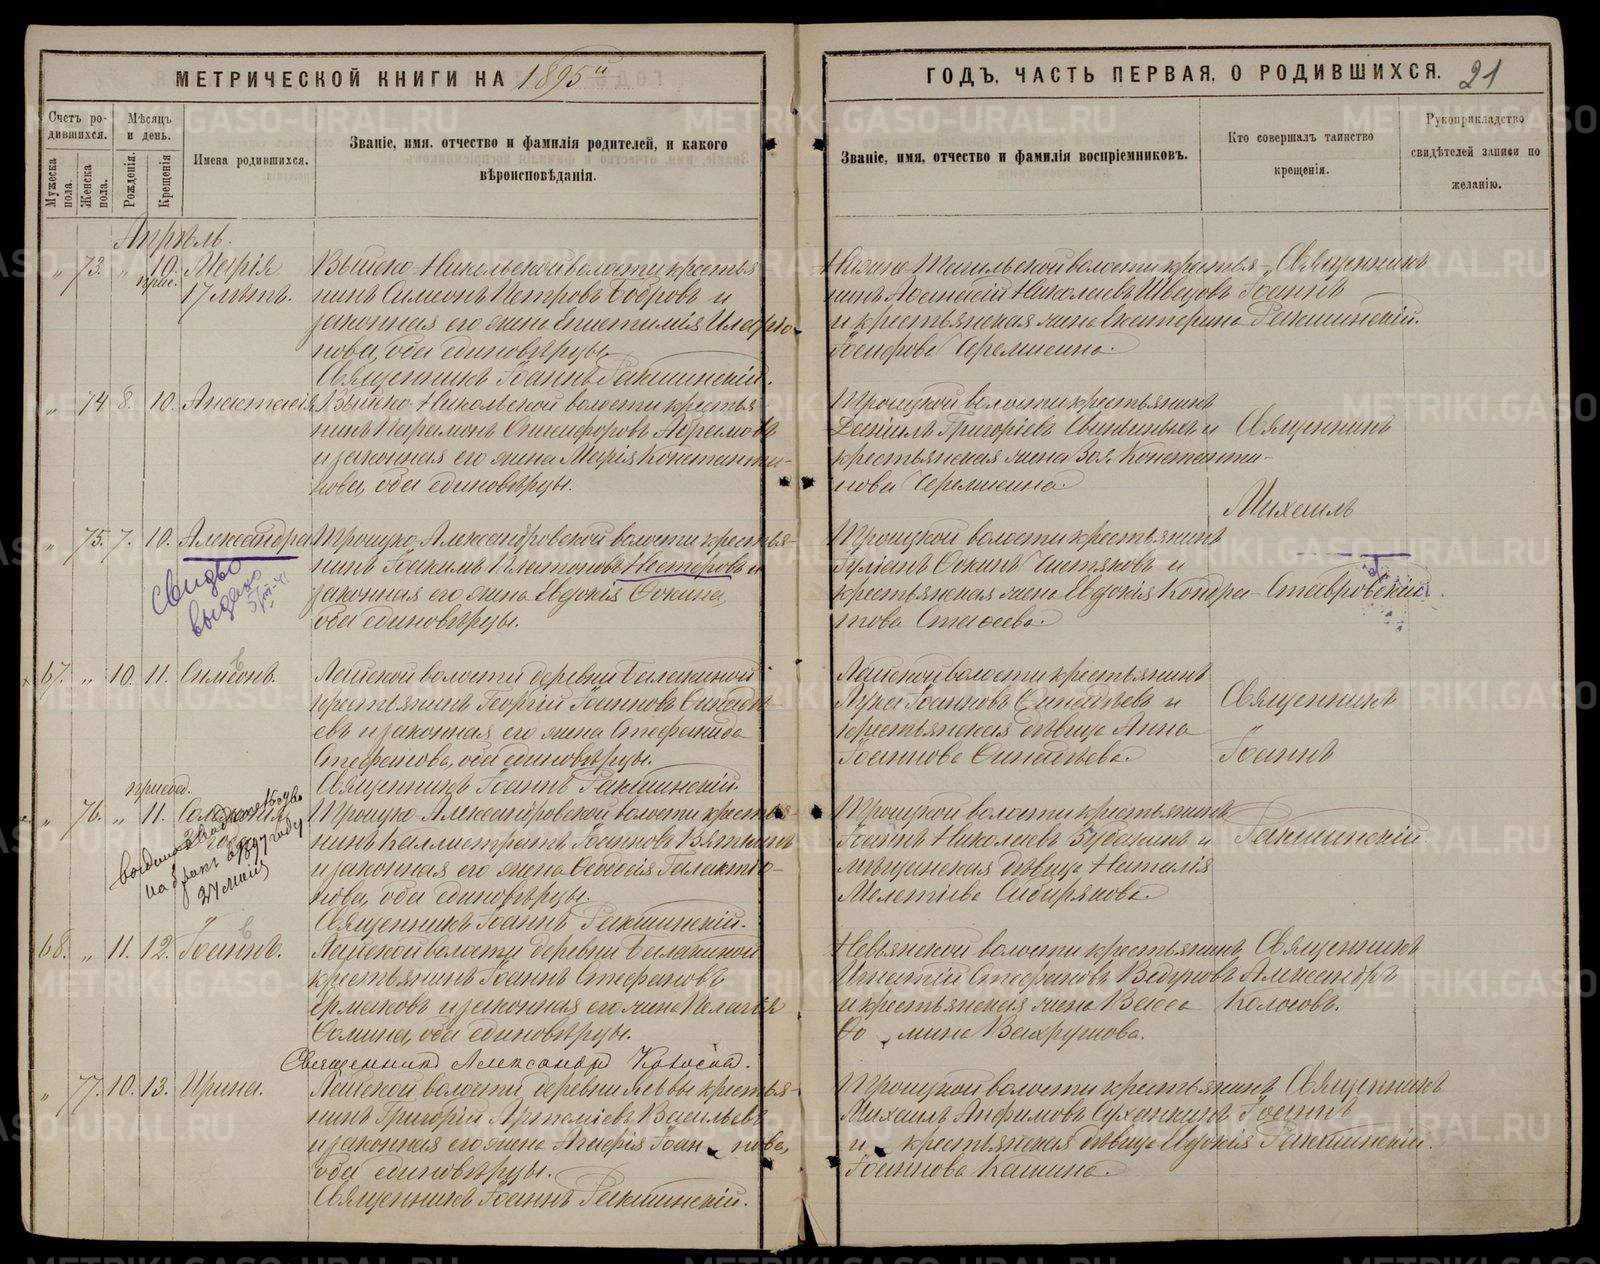 МЕТРИЧЕСКОЙ КНИГИ НА 1895й
ГОДЪ, ЧАСТЬ ПЕРВАЯ, О РОДИВШИХСЯ. 21
Счетъ родившихся.
Мѣсяцъ и день.
Мужеска пола.
Женска пола.
Рожденія.
Крещенія
Имена родившихся.
Званіе, имя, отчество и фамилія родителей, и какого
вѣроисповѣданія.
Званіе, имя, отчество и фамилія воспріемниковъ.
Кто совершалъ таинство
крещенія.
Рукоприкладство
свидѣтелей записи по
желанію.
Апрѣль.
„ 73. „ 10. Марія
прис.
17 лѣтъ.
Выйско-Никольской волости крестья
нинъ Симеонъ Петровъ Бобровъ и
законная его жена Епистимія Иларіо-
нова, оба единовѣрцы.
Священникъ Іоаннъ Ракшинскій.
Нижно-Тагильской волости крестья-
нинъ Николаевъ Швецовъ
и крестьянская жена Екатерина
Іосифова Черемисина.
Священникъ
Іоаннъ
Ракшинскій.
„ 74 8. 10. Анастасія
Выйско-Никольской волости крестья
нинъ Парамонъ Никифоровъ Абрамовъ
и законная его жена Марія Константи-
нова, оба единовѣрцы.
Троицкой волости крестьянинъ
Даніилъ Григоріевъ и
крестьянская жена Зоя Константи-
нова Черемисина.
Священникъ
Михаилъ
Ставровскій
„ 75. 7. 10. Александра
свидѣт
выдано
Троицко-Александровской волости крестья-
нинъ Іоакимъ Платоновъ Нестеровъ и
законная его жена Евдокія Фокина,
оба единовѣрцы.
Троицкой волости крестьянинъ
Іуліанъ Фокинъ Чистяковъ и
крестьянская жена Евдокія Кондра-
това
67. „ 10. 11. Симеонъ.
Лайской волости деревни Балакиной
крестьянинъ Георгій Іоанновъ
евъ и законная его жена Стефанида
Стефанова, оба единовѣрцы.
Священникъ Іоаннъ Ракшинскій.
Лайской волости крестьянинъ
Лука Іоанновъ и
крестьянская дѣвица Анна
Іоаннова
Священникъ
Іоаннъ
Ракшинскій
присоед.
„ 76. „ 11.
на бракъ 1897 году
27 Маія
Троицко-Александровской волости крестья-
нинъ Каллистратъ Іоанновъ Вяткинъ
и законная его жена Феодосія Галактіо-
нова, оба единовѣрцы.
Священникъ Іоаннъ Ракшинскій.
Троицкой волости крестьянинъ
Іоаннъ Николаевъ и
мѣщанская дѣвица Наталія
Мелетіева Сибирякова.
68. „ 11. 12. Іоаннъ.
Лайской волости деревни Балакиной
крестьянинъ Іоаннъ Стефановъ
Ермаковъ и законная его жена Пелагія
Фомина, оба единовѣрцы.
Священникъ Александръ Колосовъ.
Невьянской волости крестьянинъ
Игнатій Стефановъ и крестьянская жена Васса
Фо мина Вахрушова.
Священникъ
Александръ
Колосовъ.
„ 77. 10. 13. Ирина.
Лайской волости деревни Львы крестья-
нинъ Григорій Артеміевъ Васильевъ
и законная его жена Агафія Іоан нова,
оба единовѣрцы.
Священникъ Іоаннъ Ракшинскій.
Троицкой волости крестьянинъ
Михаилъ Анфимовъ Суханкинъ
и крестьянская дѣвица Евдокія
Іоаннова Кашина.
Священникъ
Іоаннъ
Ракшинскій.
METRIKI.GASO-URAL.RU